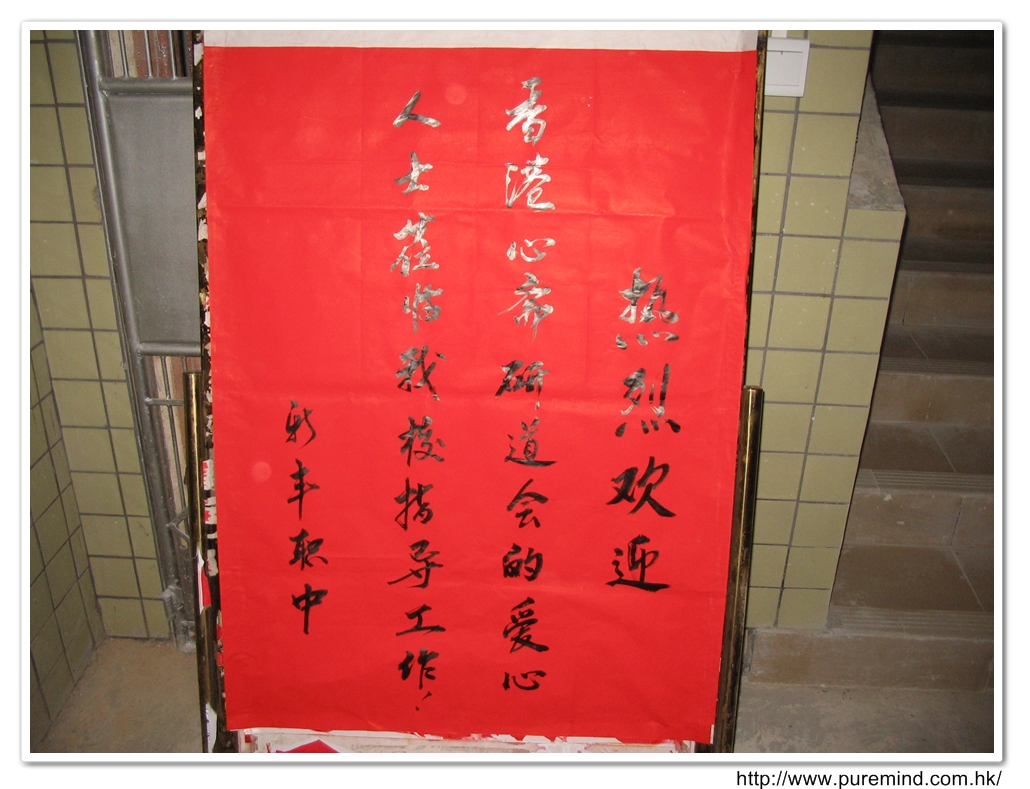 热烈欢迎
香港心斋研道会的爱心
人士莅临我校指导工作！
新丰职中
http://www.puremind.com.hk/